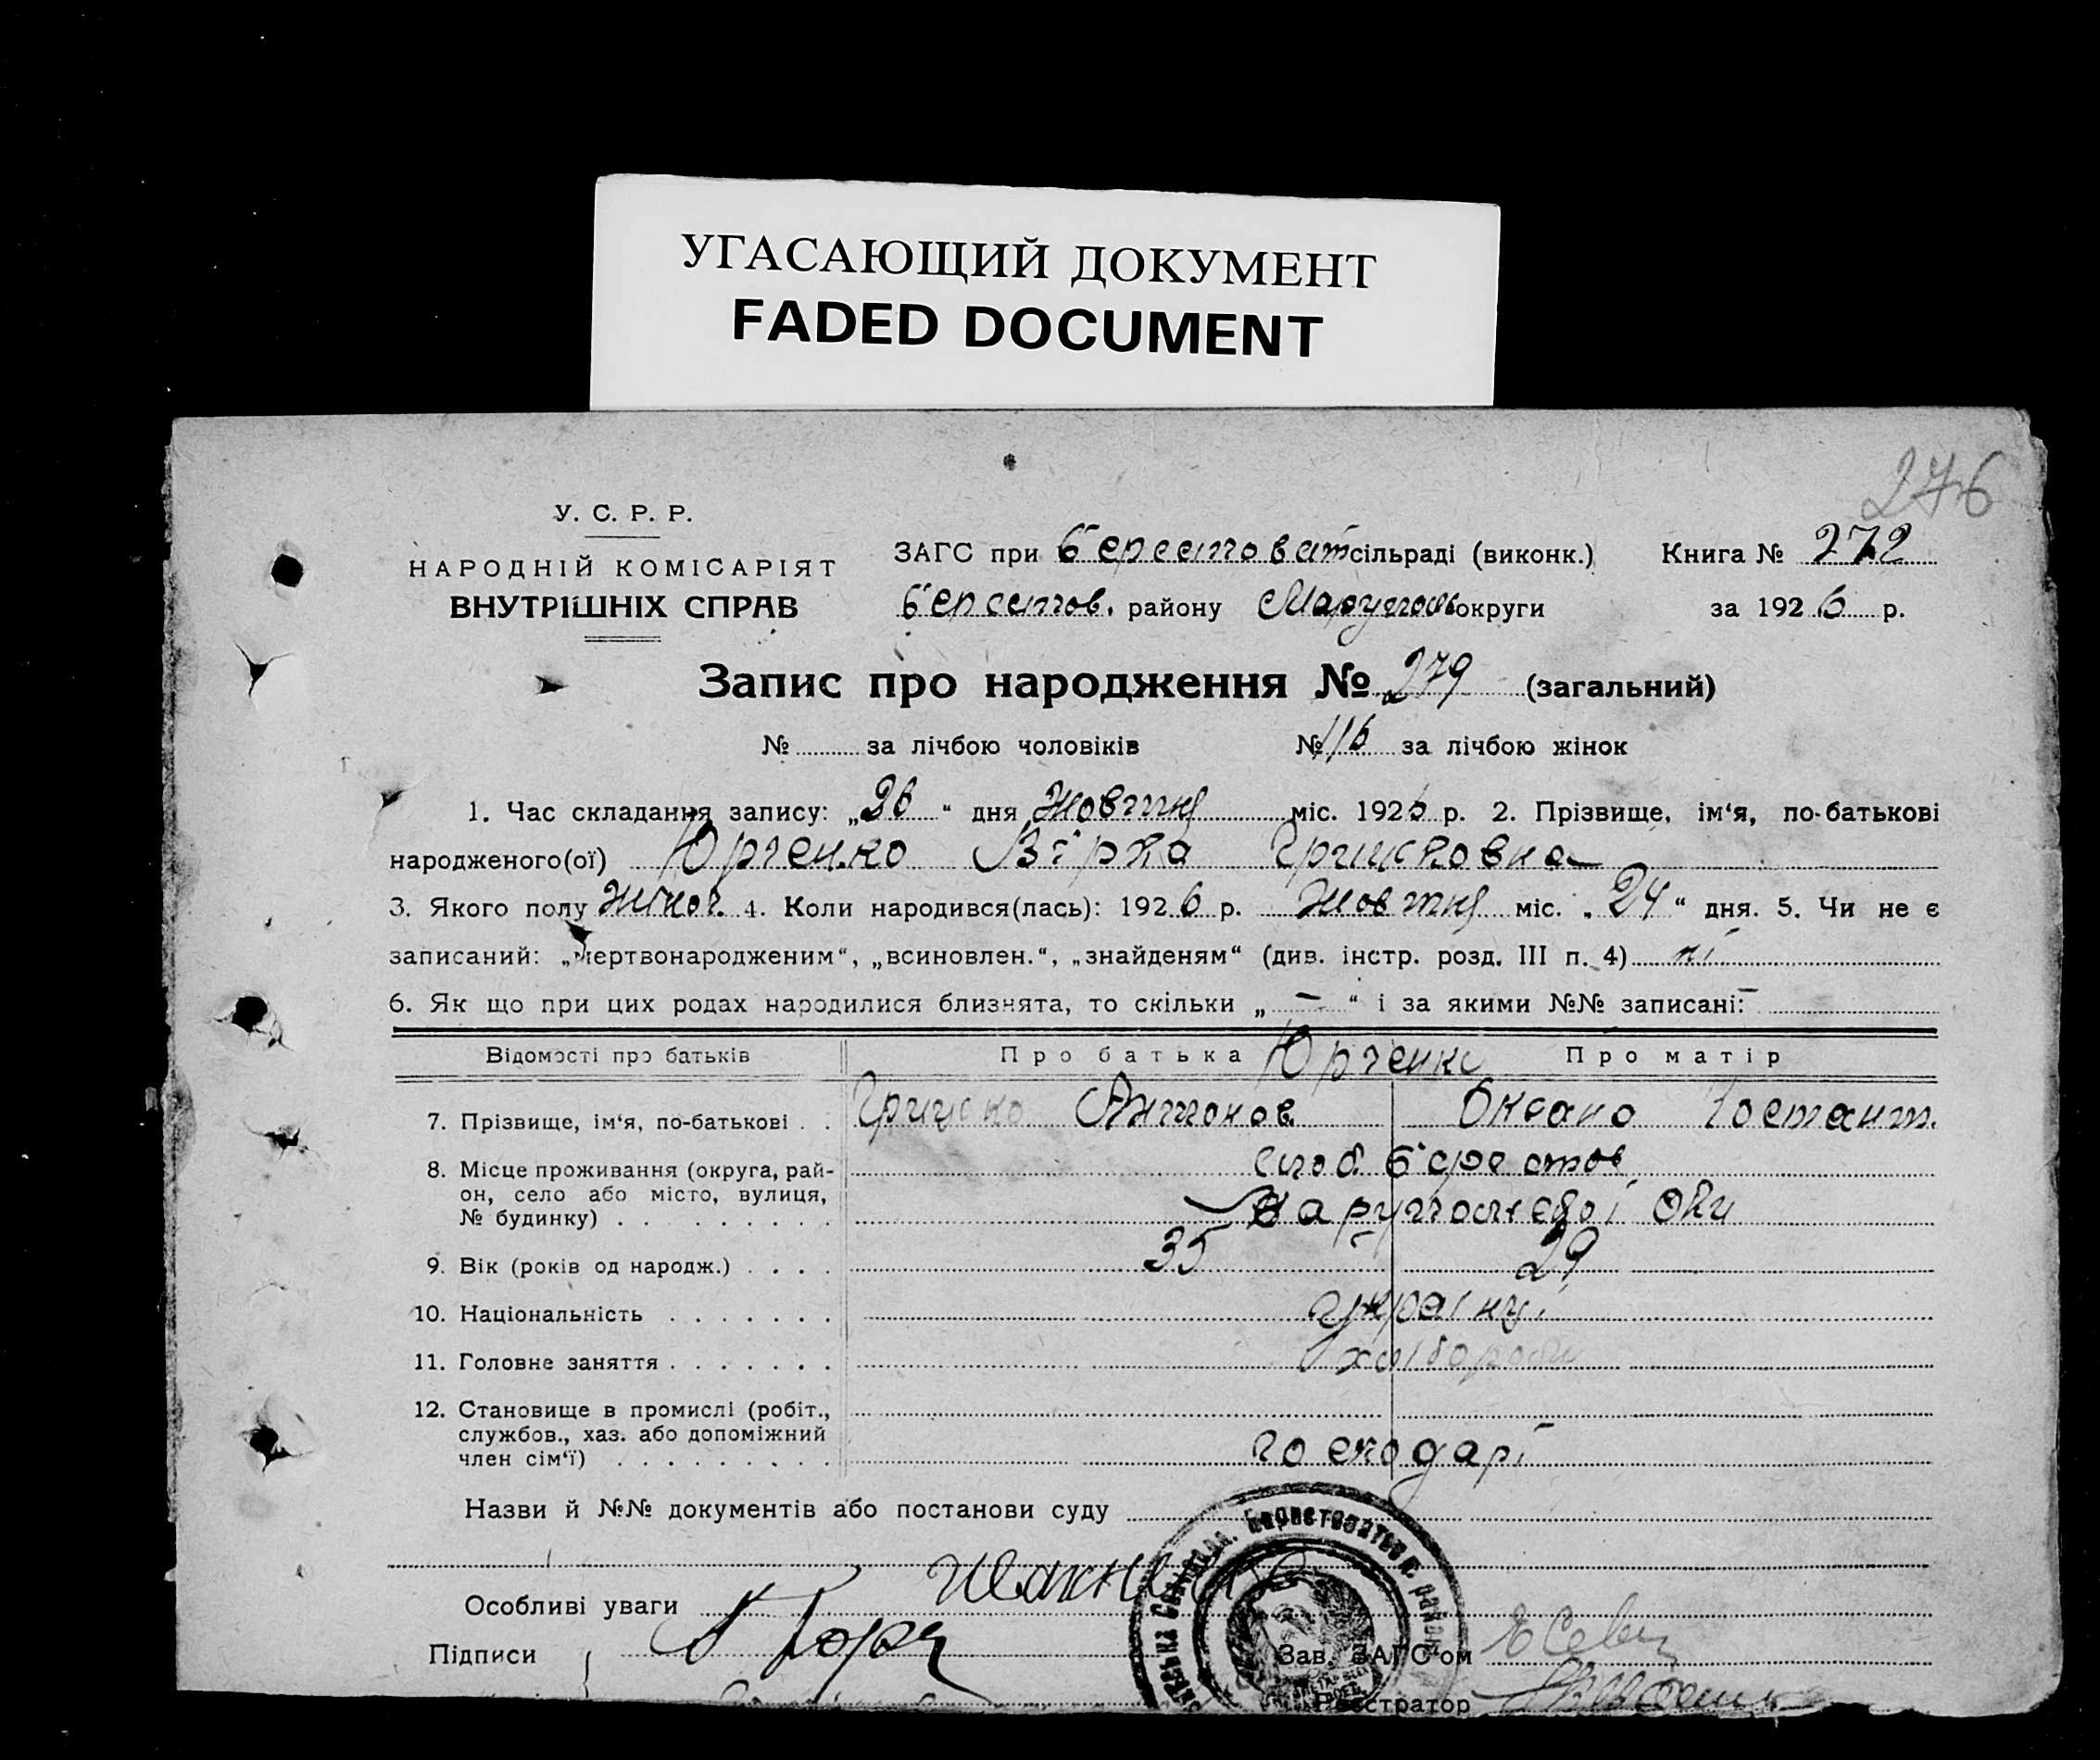 УГАСАЮЩИЙ ДОКУМЕНТ
FADED DOCUMENT
276
У. С. Р. Р.
НАРОДНІЙ КОМІСАРІЯТ
ВНУТРІШНІХ СПРАВ
ЗАГС при Берестоват сільраді (виконк.) Книга № 272
Берестов. району Маруполь округи за 1926 р.
Запис про народження № 279 (загальний)
№ за лічбою чоловіків № 116 за лічбою жінок
1. Час складання запису: „26“ дня Жовтня міс. 1926 р. 2. Прізвище, ім‘я, по-батькові
народженого(ої) Юрченко Вірка Грицковна
3. Якого полу жіноч. 4. Коли народився(лась): 1926 р. Жовтня міс. „24“ дня. 5. Чи не є
записаний: „мертвонародженим“, „всиновлен.“, „знайденям“ (див. інстр. розд. III п. 4) ні
6. Як що при цих родах народилися близнята, то скільки „ – “ і за якими №№ записані: –
Відомості про батьків Про батька Юрченко Про матір
7. Прізвище, ім‘я, по-батькові . . Грицько Антонов Оксана Костант.
8. Місце проживання (округа, рай-
он, село або місто, вулиця,
№ будинку) . . . . . . . . .
слоб Берестов
Марупольської Окр
9. Вік (років од народж.) . . . . 35 29
10. Національність . . . . . . . украінці
11. Головне заняття . . . . . . . хліборобі
12. Становище в промислі (робіт.,
службов., хаз. або допоміжний
член сім‘ї) . . . . . . . . . господарі
Назви й №№ документів або постанови суду
Особливі уваги
Підписи
Зав. ЗАГС‘ом
Реєстратор